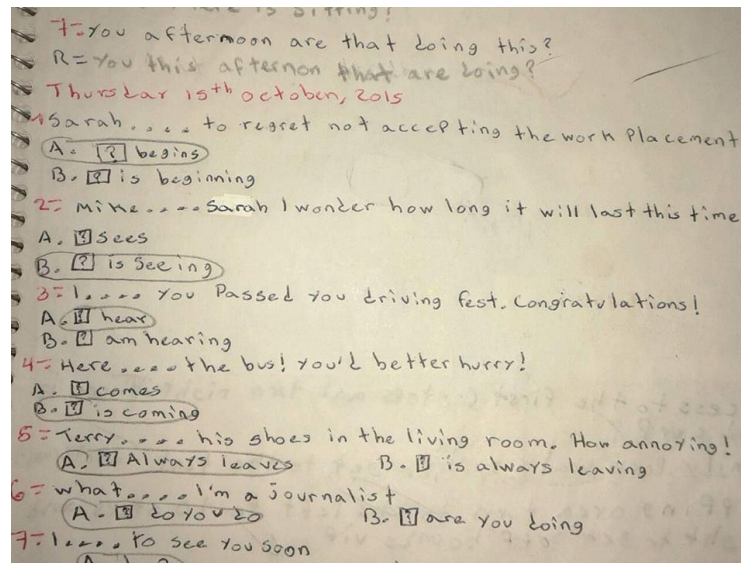 is sitting!
7=You aftermoon are that doing this?
R= You this afternon that are doing?
Thursdar 15th october, 2015
1 Sarah.... to regret not accepting the work placement
A. [?] begins
B. [?] is beginning
2= Mike..... Sarah I wonder how long it will last this time
A. [?] Sees
B. [?] is Seeing
3= I.... You Passed you driving fest. Congratulations!
A. [?] hear
B. [?] am hearing
4= Here .... the bus! you'd better hurry!
A. [?] comes
B. [?] is coming
5= Terry.... his shoes in the living room. How annoying!
A. [?] Always leaves B. [?] is always leaving
6= what.... I'm a journalist
A. [?] do you do B. [?] are you doing
7= I.... to see you soon